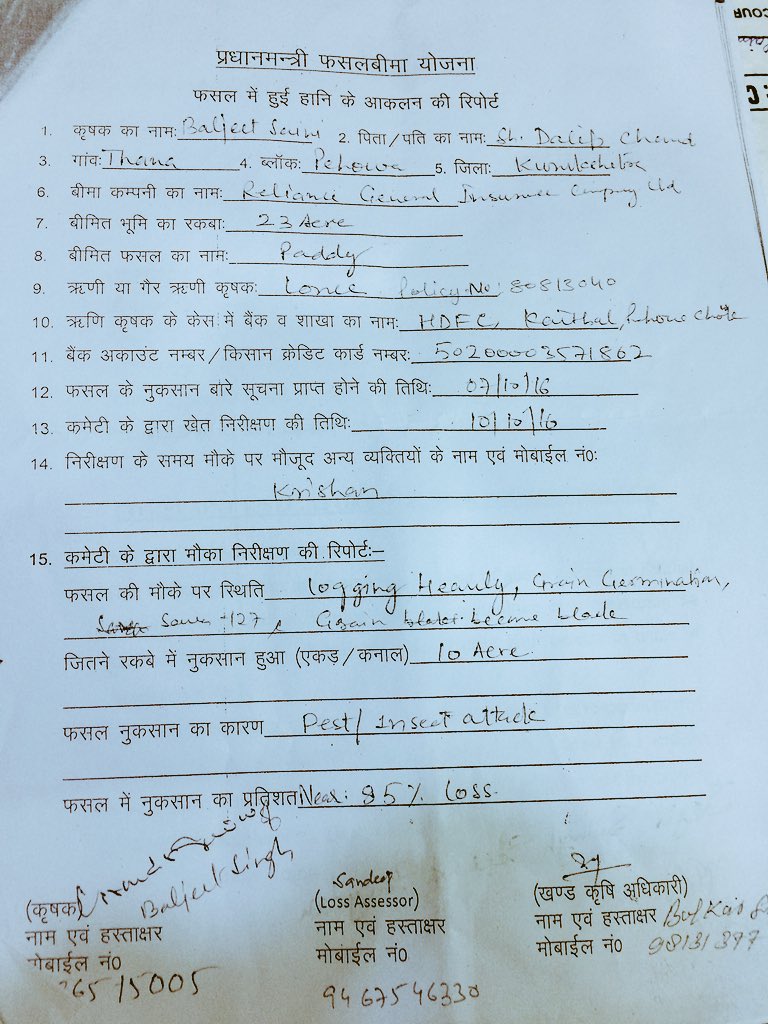 COUR
प्रधानमन्त्री फसलबीमा योजना
फसल में हुई हानि के आकलन की रिपोर्ट
1. कृषक का नाम: Baljeet Saini 2. पिता/पति का नाम: Sh. Dalip Chand
3. गांव: Thana 4. ब्लॉक: Pehowa 5. जिला: Kurukshetra
6. बीमा कम्पनी का नाम: Reliance General Insurance Company Ltd
7. बीमित भूमि का रकबा: 23 Acre
8. बीमित फसल का नाम: Paddy
9. ऋणी या गैर ऋणी कृषक: Lonee Policy No: 80813040
10. ऋणि कृषक के केस में बैंक व शाखा का नाम: HDFC, Kaithal,
11. बैंक अकाउंट नम्बर/किसान क्रेडिट कार्ड नम्बर: 50200003571862
12. फसल के नुकसान बारे सूचना प्राप्त होने की तिथि: 07/10/16
13. कमेटी के द्वारा खेत निरीक्षण की तिथि: 10/10/16
14. निरीक्षण के समय मौके पर मौजूद अन्य व्यक्तियों के नाम एवं मोबाईल नं0:
Krishan
15. कमेटी के द्वारा मौका निरीक्षण की रिपोर्ट:-
फसल की मौके पर स्थिति logging Heavly, Grain Germination,
Grain become
जितने रकबे में नुकसान हुआ (एकड़/कनाल) 10 Acre.
फसल नुकसान का कारण Pest/Insect attack
फसल में नुकसान का प्रतिशत 85% loss.
Baljeet Singh
Sandeep
(कृषक) (Loss Assessor) (खण्ड कृषि अधिकारी)
नाम एवं हस्ताक्षर नाम एवं हस्ताक्षर नाम एवं हस्ताक्षर
मोबाईल नं0 मोबाईल नं0 मोबाईल नं0 98131397
6515005 9467546330